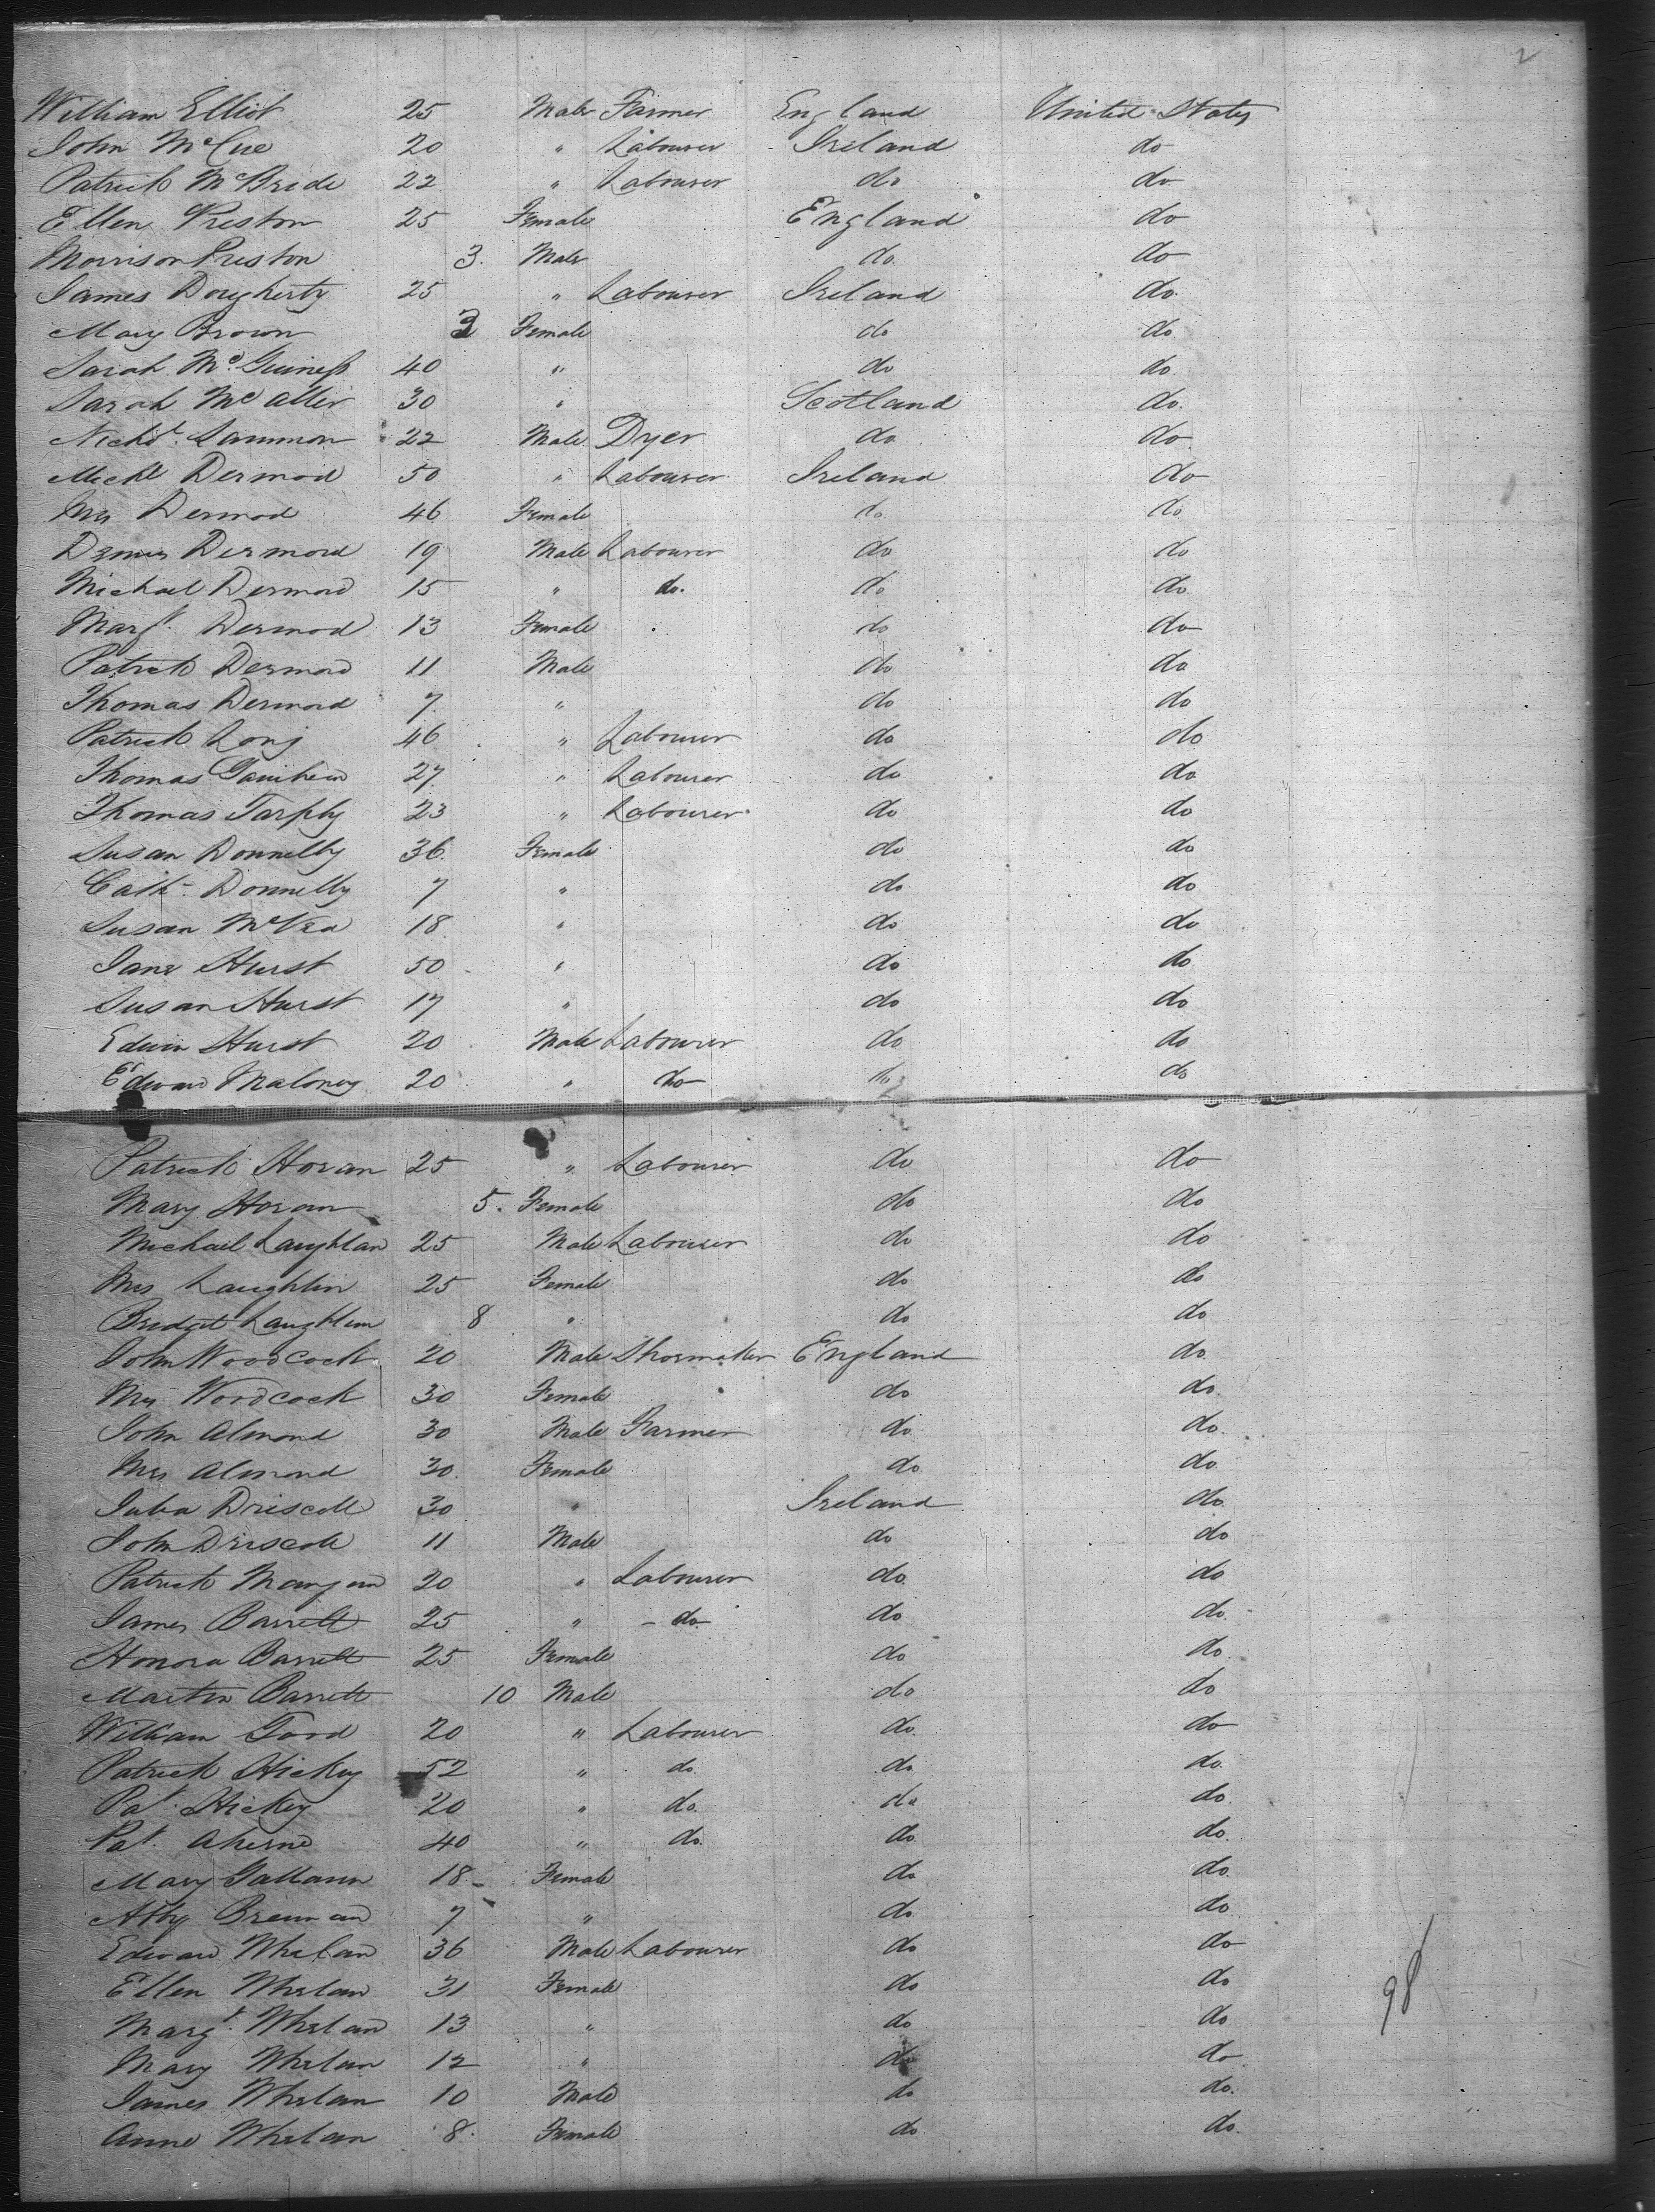 2
William Elliot 25 Male Farmer England United States
John McCue 20 " Labourer Ireland do
Patrick McBride 22 " Labourer do do
Ellen Preston 25 Female England do
Morrison Preston 3. Male do. do
James Dougherty 25 " Labourer Ireland do.
Mary Brown 3 Female do do.
Sarah Mc Guiness 40 " do do.
Sarah Mc aller 30 " Scotland do.
Lammon 22 Male Dyer do do
Michl Dermod 50 " Labourer Ireland do
Mrs Dermod 46 Female do. do
Dermod 19 Male Labourer do do
Michael Dermod 15 " do. do do.
Margt. Dermod 13 Female do do
Patrick Dermod 11 Male do do
Thomas Dermod 7. " do do
Patrick Long 46 " Labourer do do
Thomas 27. " Labourer do do
Thomas Tarphy 23 " Labourer do do
Susan Donnelly 36. Female do do
Cath. Donnelly 7 " do do
Susan McVea 18 " do do
Jane Hurst 50 " do do
Susan Hurst 17 " do do
Edwin Hurst 20 Male Labourer do do
Edward Maloney 20 " do do do
Patrick Horan 25 " Labourer do do
Mary Horan 5. Female do do
Michael Laughlan 25 Male Labourer do do
Mrs Laughlin 25 Female do do
Bridget Laughlin 8 " do do
John Woodcock 20 Male Shoemaker England do.
Mrs Woodcock 30 Female do do.
John Almond 30 Male Farmer do do.
Mrs Almond 30. Female do do.
Julia Driscoll 30 " Ireland do.
John Driscoll 11 Male do do
Patrick Mangan 20 " Labourer do. do
James Barrett 25 " - do - do do.
Honora Barrett 25 Female do do.
Martin Barrett 10 Male do do
William 20 " Labourer do. do
Patrick Hickey 52 " do. do. do.
Pat. Hickey 20 " do. do do.
Pat. Aherne 40 " do. do. do.
Mary 18 Female do. do.
Abby Brennan 7 " do. do
Edward Whelan 36 Male Labourer do do
Ellen Whelan 31 Female do do
Margt. Whelan 13 " do do
Mary Whelan 12 " do do
James Whelan 10 Male do do.
Anne Whelan 8. Female do. do.
98